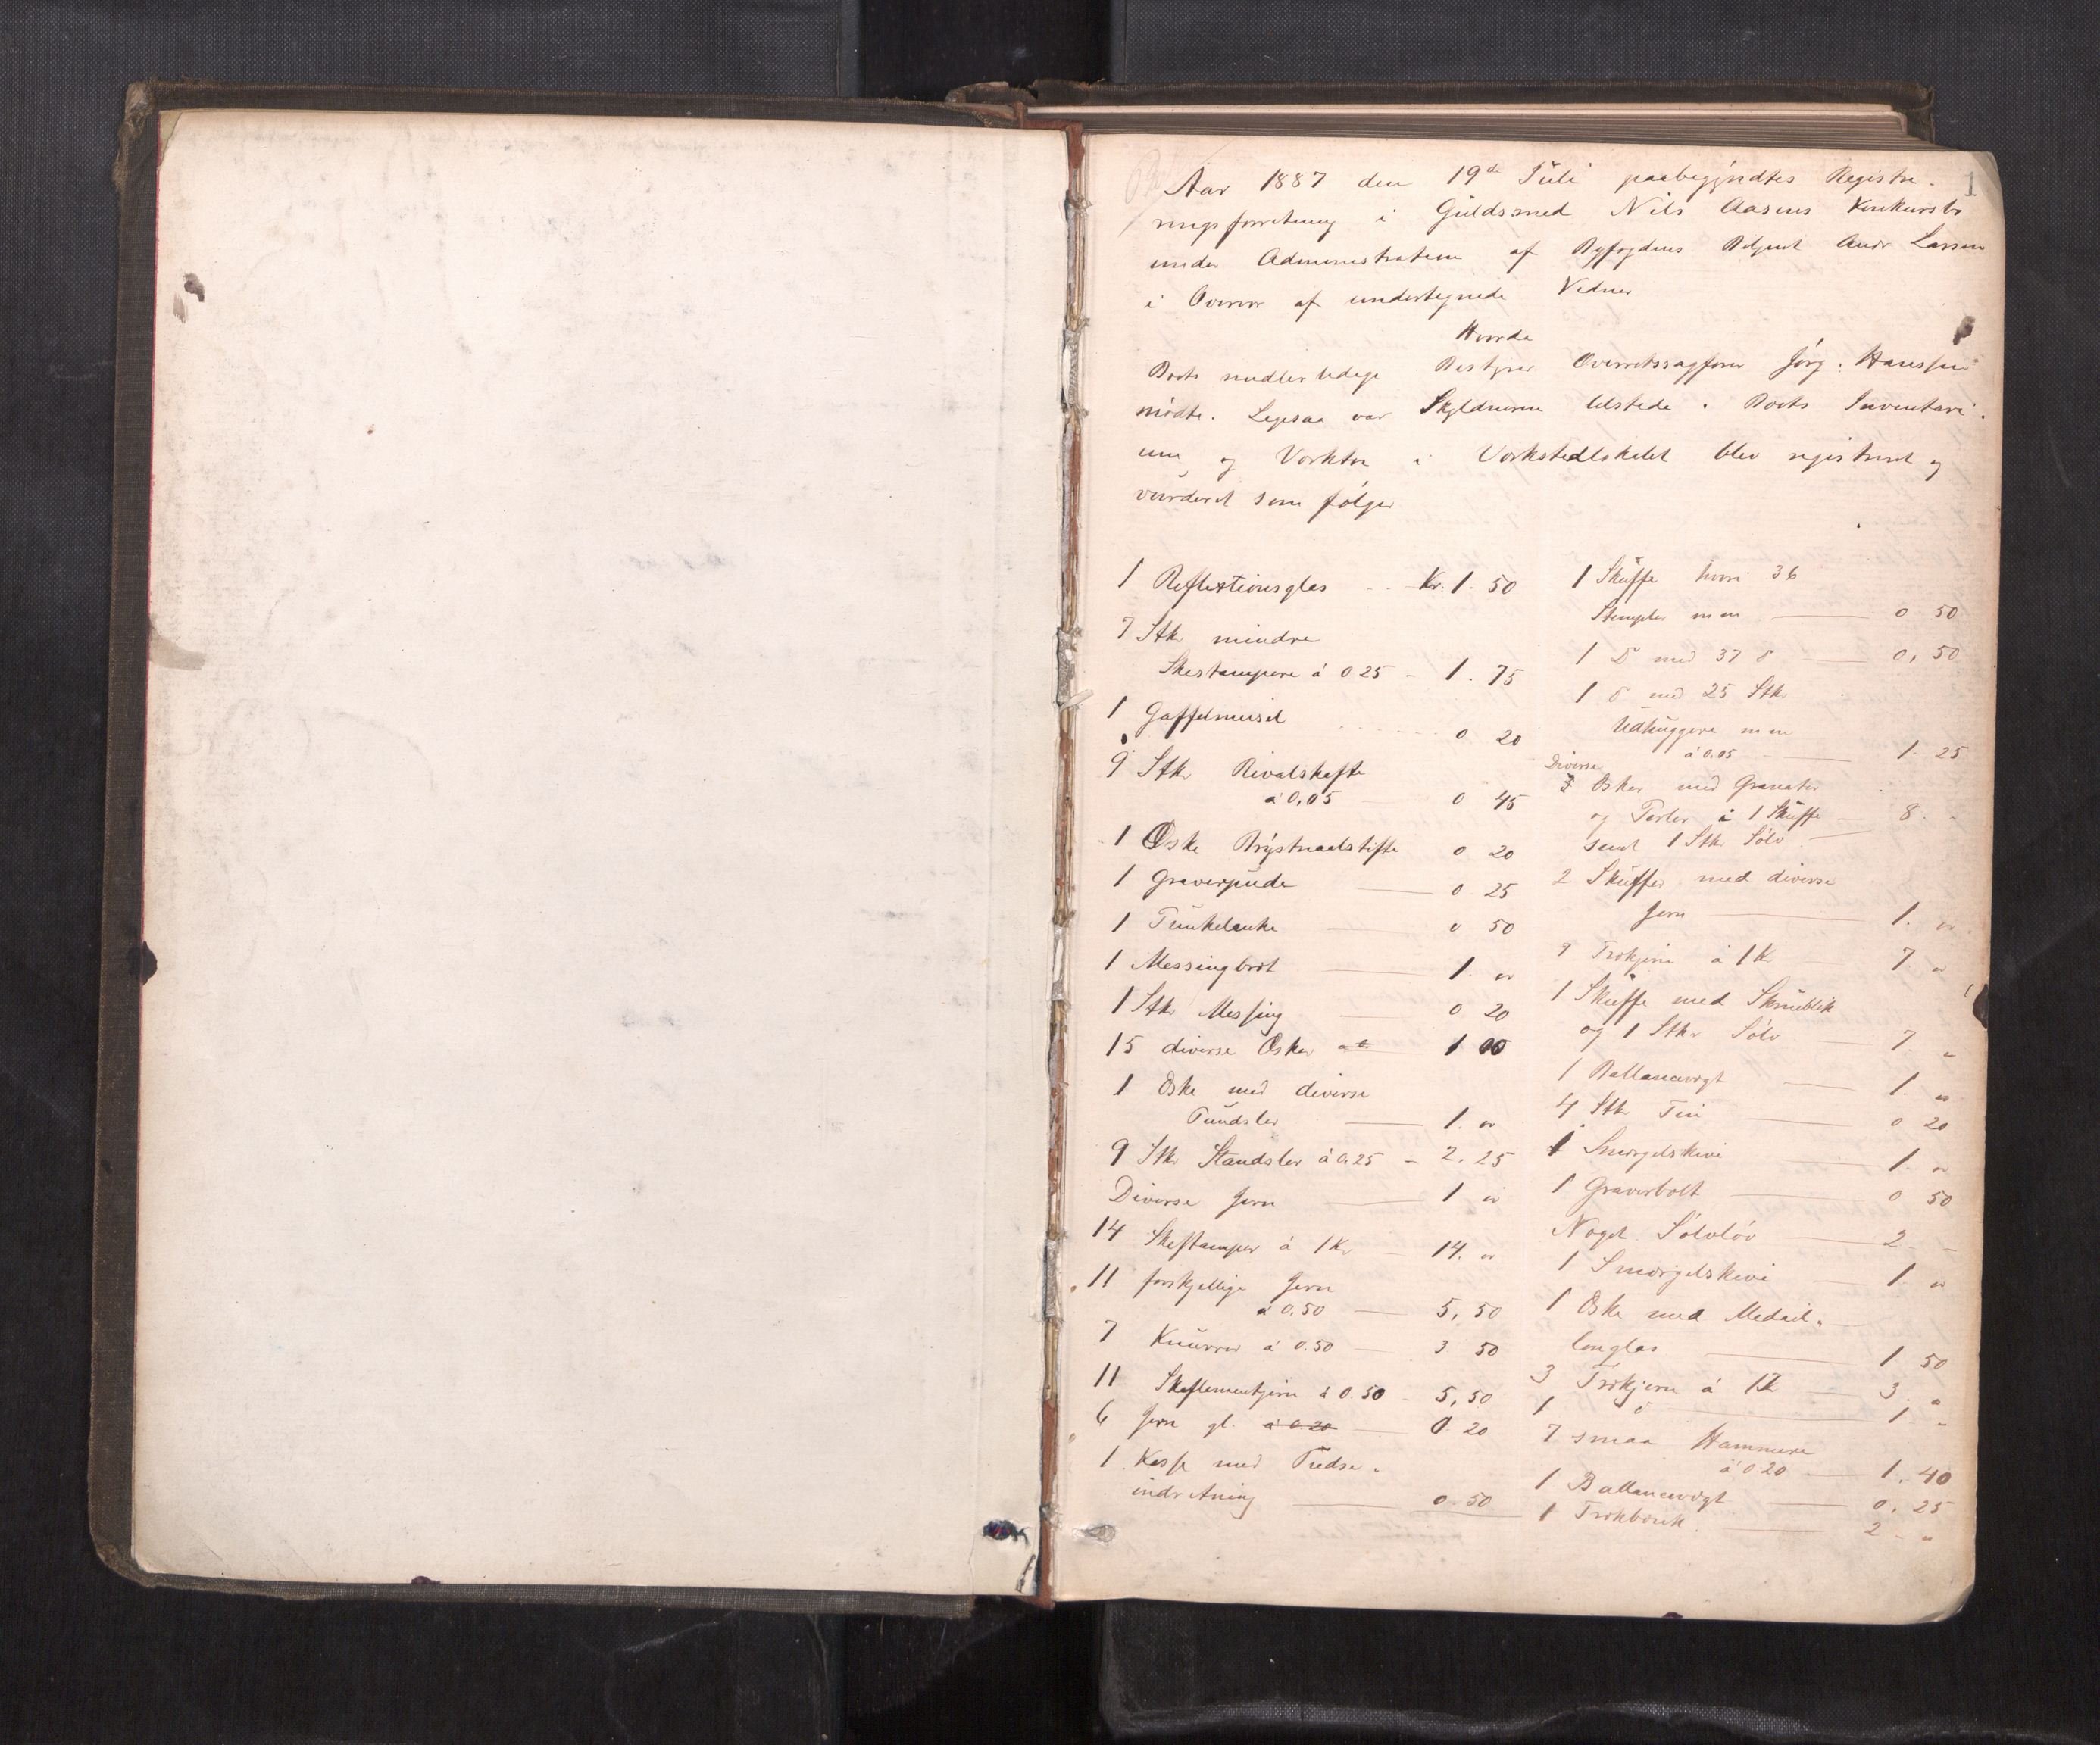 1
Aar 1887 den 19de Juli paabegyndtes Registre-
ringsforretning i Guldsmed Nils Aasens Konkursbo
under Administration af Byfogdens Betjent Andr Larsen
i Overvær af undertegnede Vidner
Hvorda
Boets midlertidige Bestyrer Overretssagfører Jørg. Hanssen
mødte. Ligesaa var Skyldneren tilstede. Boets Inventari-
um og Værktøi i Værkstedlokalet blev registreret og
vurderet som følger
1 Reflektionsglas Kr. 1. 50
7 Stkr mindre
Skestampere á 0 25 - 1. 75
1 Gaffelmeisel 0 20
9 Stkr Rivalskafte
á 0,05 0 45
1 Øske Brystnaalstifte 0 20
1 Graverpude 0 25
1 Tunkelanke 0 50
1 Messingbret 1. "
1 Stkr Messing 0 20
15 diverse Øsker 1 00
1 Øske med diverse
Pundsler 1. "
9 Stkr Standsler á 0.25 - 2. 25
Diverse Jern 1 "
14 Skestamper á 1 Kr 14. "
11 forskjellige Jern
á 0.50 5, 50
7 Knurrer á 0.50 3 50
11 Skeflementjern á 0.50 5, 50
6 Jern gl. á 0.20 0. 20
1 Kasse med Tredse-
indretning 0 50
1 Skuffe hvori 36
Stempler m m 0 50
1 Do med 37 do 0, 50
1 do med 25 Stkr
Udhuggere m m
á 0.05 1. 25
Diverse
Øsker med Granater
og Perler i 1 Skuffe 8. "
samt 1 Stkr Sølv
2 Skuffer med diverse
Jern 1. "
7 Trækjern á 1 Kr 7 "
1 Skuffe med Skrueblik
og 1 Stkr Sølv 7 "
1 Ballancevægt 1. "
4 Stkr Tin 0 20
1 Smergelskive 1. "
1 Graverbolt 0 50
Noget Sølvløv 2 -
1 Smergelskive 1. "
1 Øske med Medail-
longlas 1 50
3 Trækjern á 1 Kr 3. "
1 do 1 "
7 smaa Hammere
á 0.20 1. 40
1 Ballancevægt 0. 25
1 Trækbænk 2 - "